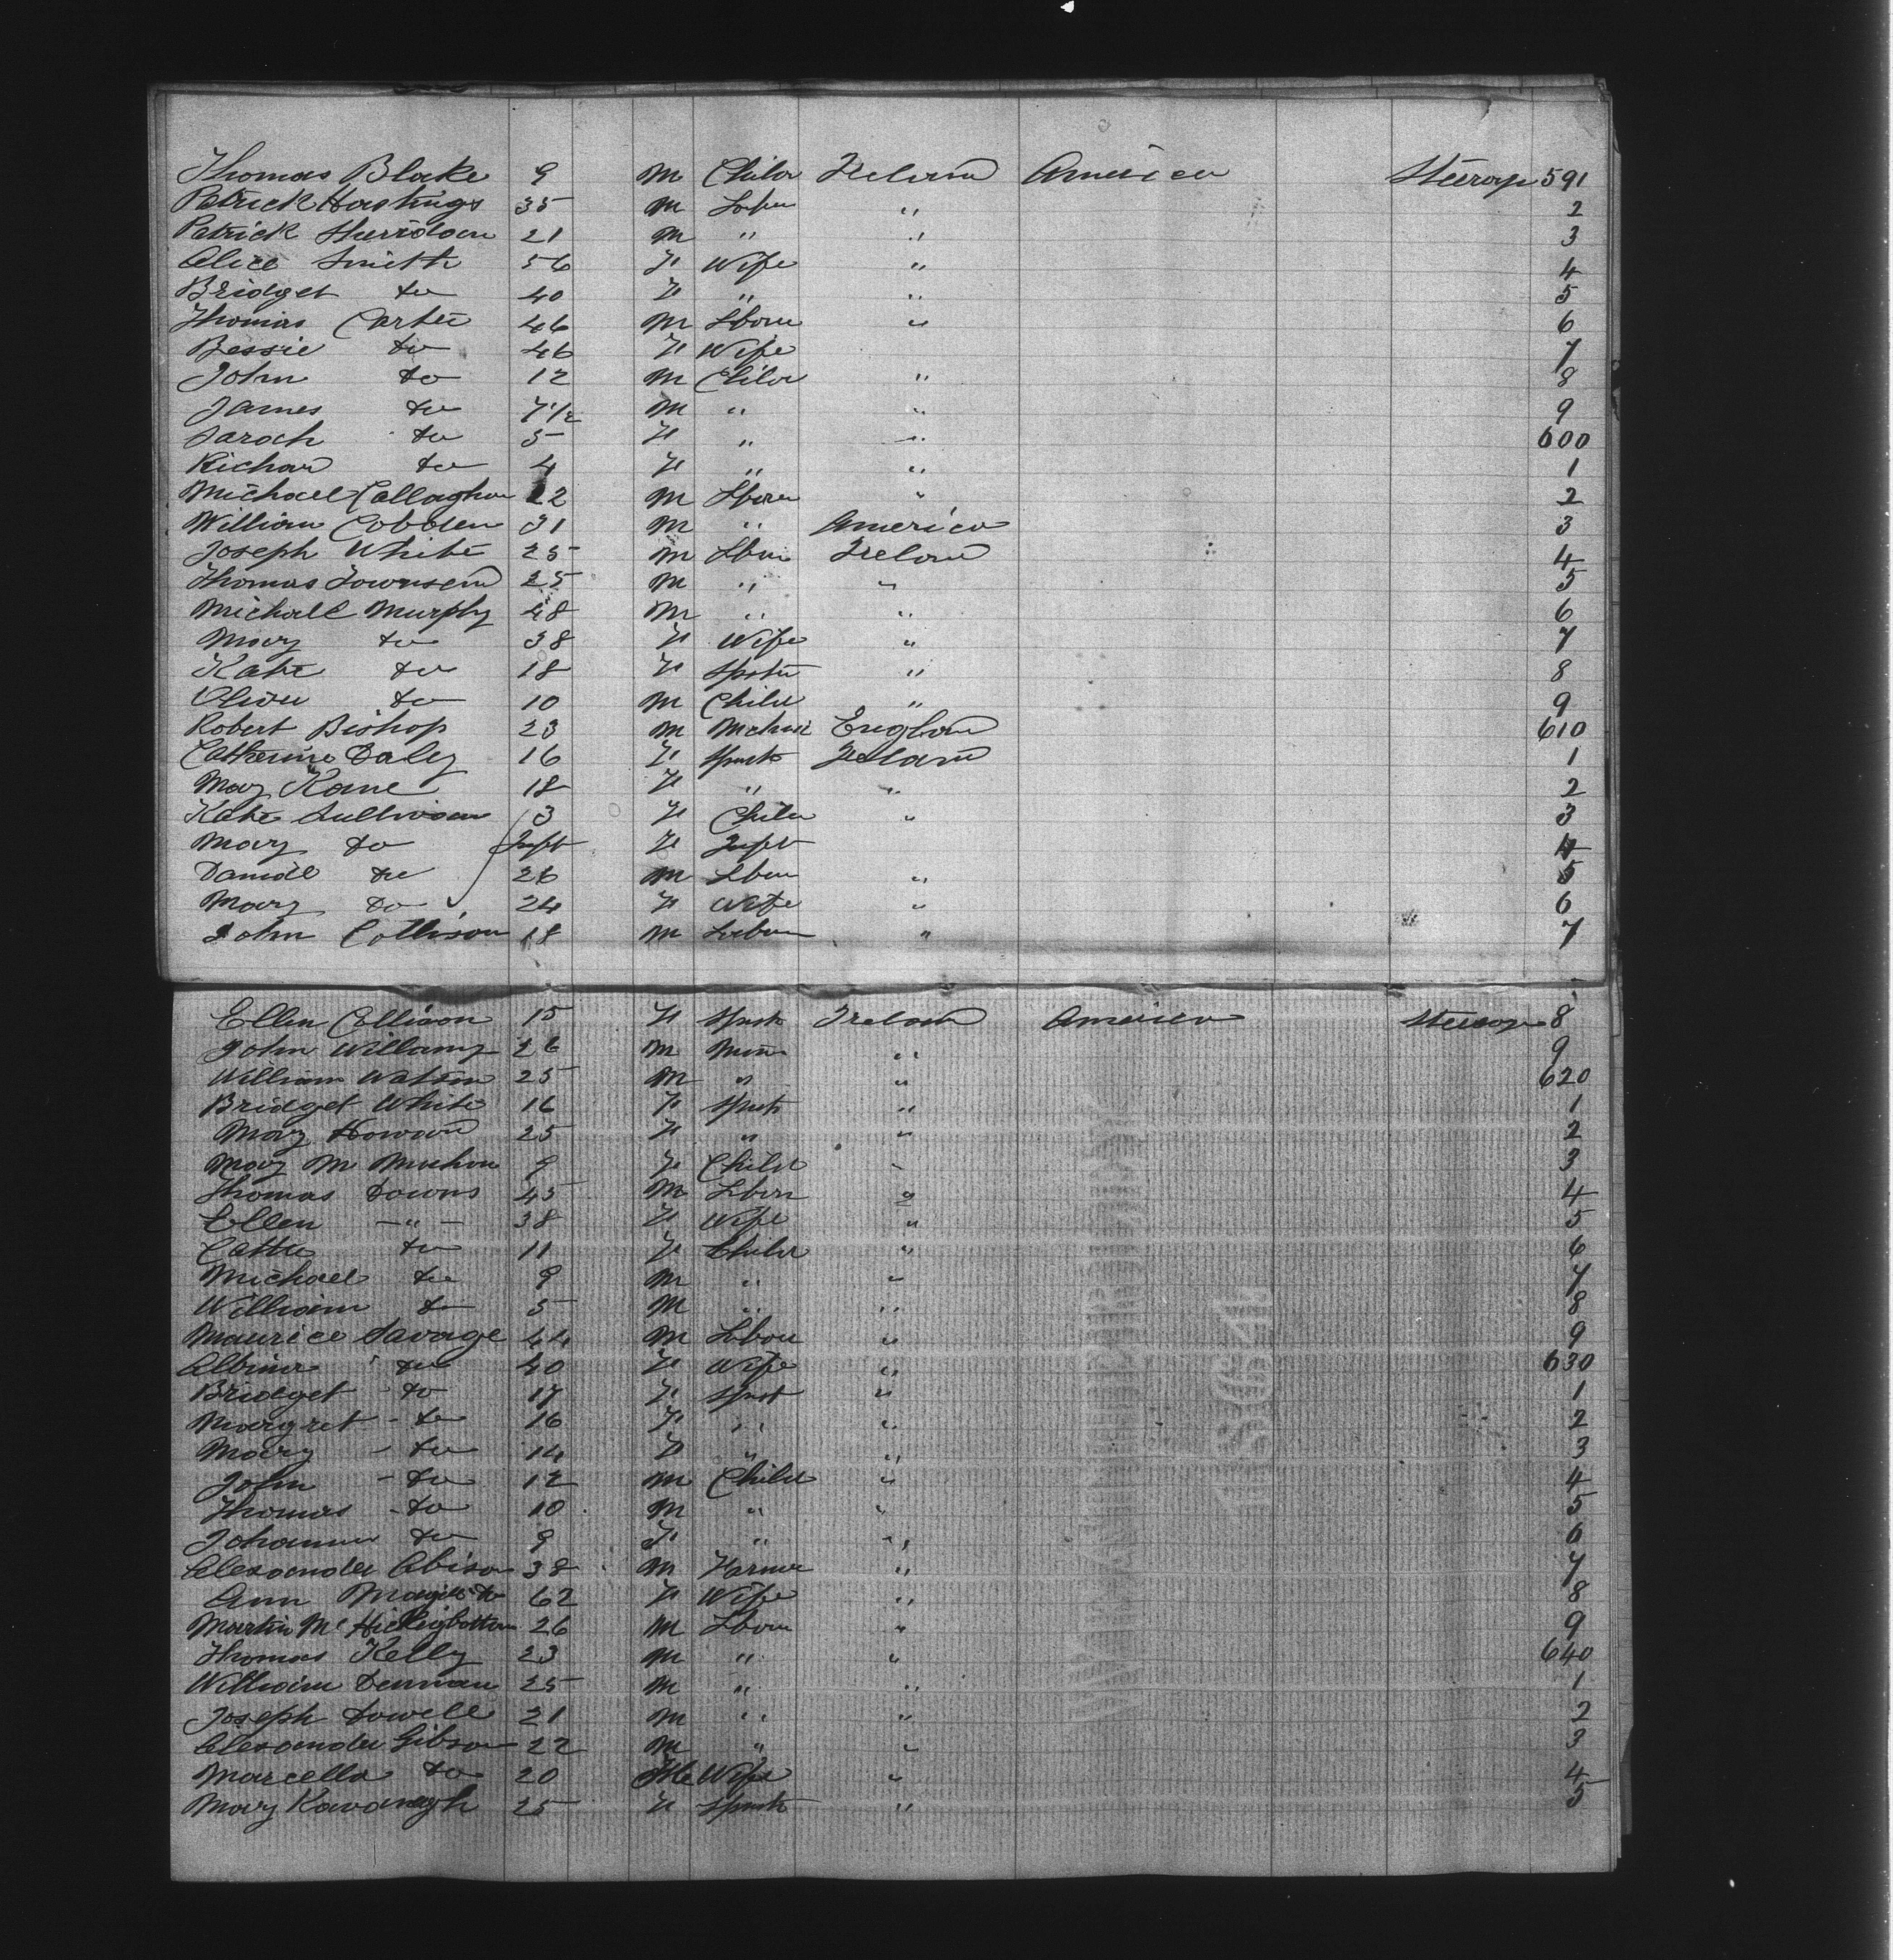 Thomas Blake 9 M Child Ireland America Steerage 591
Patrick Hastings 35 M Labr " 2
Patrick Sherridan 21 M " " 3
Alice Smith 56 F Wife " 4
Bridget do 40 F " " 5
Thomas Carter 46 M Lborer " 6
Bessie do 46 F Wife 7
John do 12 M Child " 8
James do 7 1/2 M " " 9
Sarah do 5 F " " 600
Richar do 4 F " " 1
Michael Callaghan 22 M Lborer " 2
William Cobden 31 M " America 3
Joseph White 25 M Lbor Ireland 4
Thomas Townsend 25 M " " 5
Michall Murphy 48 M " " 6
Mary do 38 F Wife " 7
Kate do 18 F Spstr " 8
Oliver do 10 M Child " 9
Robert Bishop 23 M Mchnic England 610
Catherine Daley 16 F Spnstr Ireland 1
Mary Kane 18 F " " 2
Kate Sullivan 3 F Child " 3
Mary do Inft F Inft 4
Daniel do 26 M Lbor " 5
Mary do 24 F Wife " 6
John Collison 18 M Labor " 7
Ellen Collison 15 F Spnstr Ireland America Steerage 8
John Willamy 26 M Min " 9
William Watson 25 M " " 620
Bridget White 16 F Spnstr " 1
Mary Howard 25 F " " 2
Mary M 9 F Child " 3
Thomas Downs 45 M Lborr " 4
Ellen - " - 38 F Wife " 5
Cathe do 11 F Child " 6
Michael do 9 M " " 7
William do 5 M " " 8
Maurice Savage 44 M Labor " 9
Albina do 40 F Wife " 630
Bridget do 17 F Spnst " 1
Margret - do 16 F " " 2
Mary - do 14 F " " 3
John - do 12 M Child " 4
Thomas - do 10 M " " 5
Johanna do 9 F " " 6
Alexander 38 M Farmer " 7
Ann do 62 F Wife " 8
Martin Mc 26 M Lborer " 9
Thomas Kelly 23 M " " 640
William Denman 25 M " " 1
Joseph Dowell 21 M " " 2
Alexander Gibson 22 M " " 3
Marcella do 20 Wife " 4
Mary Kavanagh 25 F Spnstr " 5